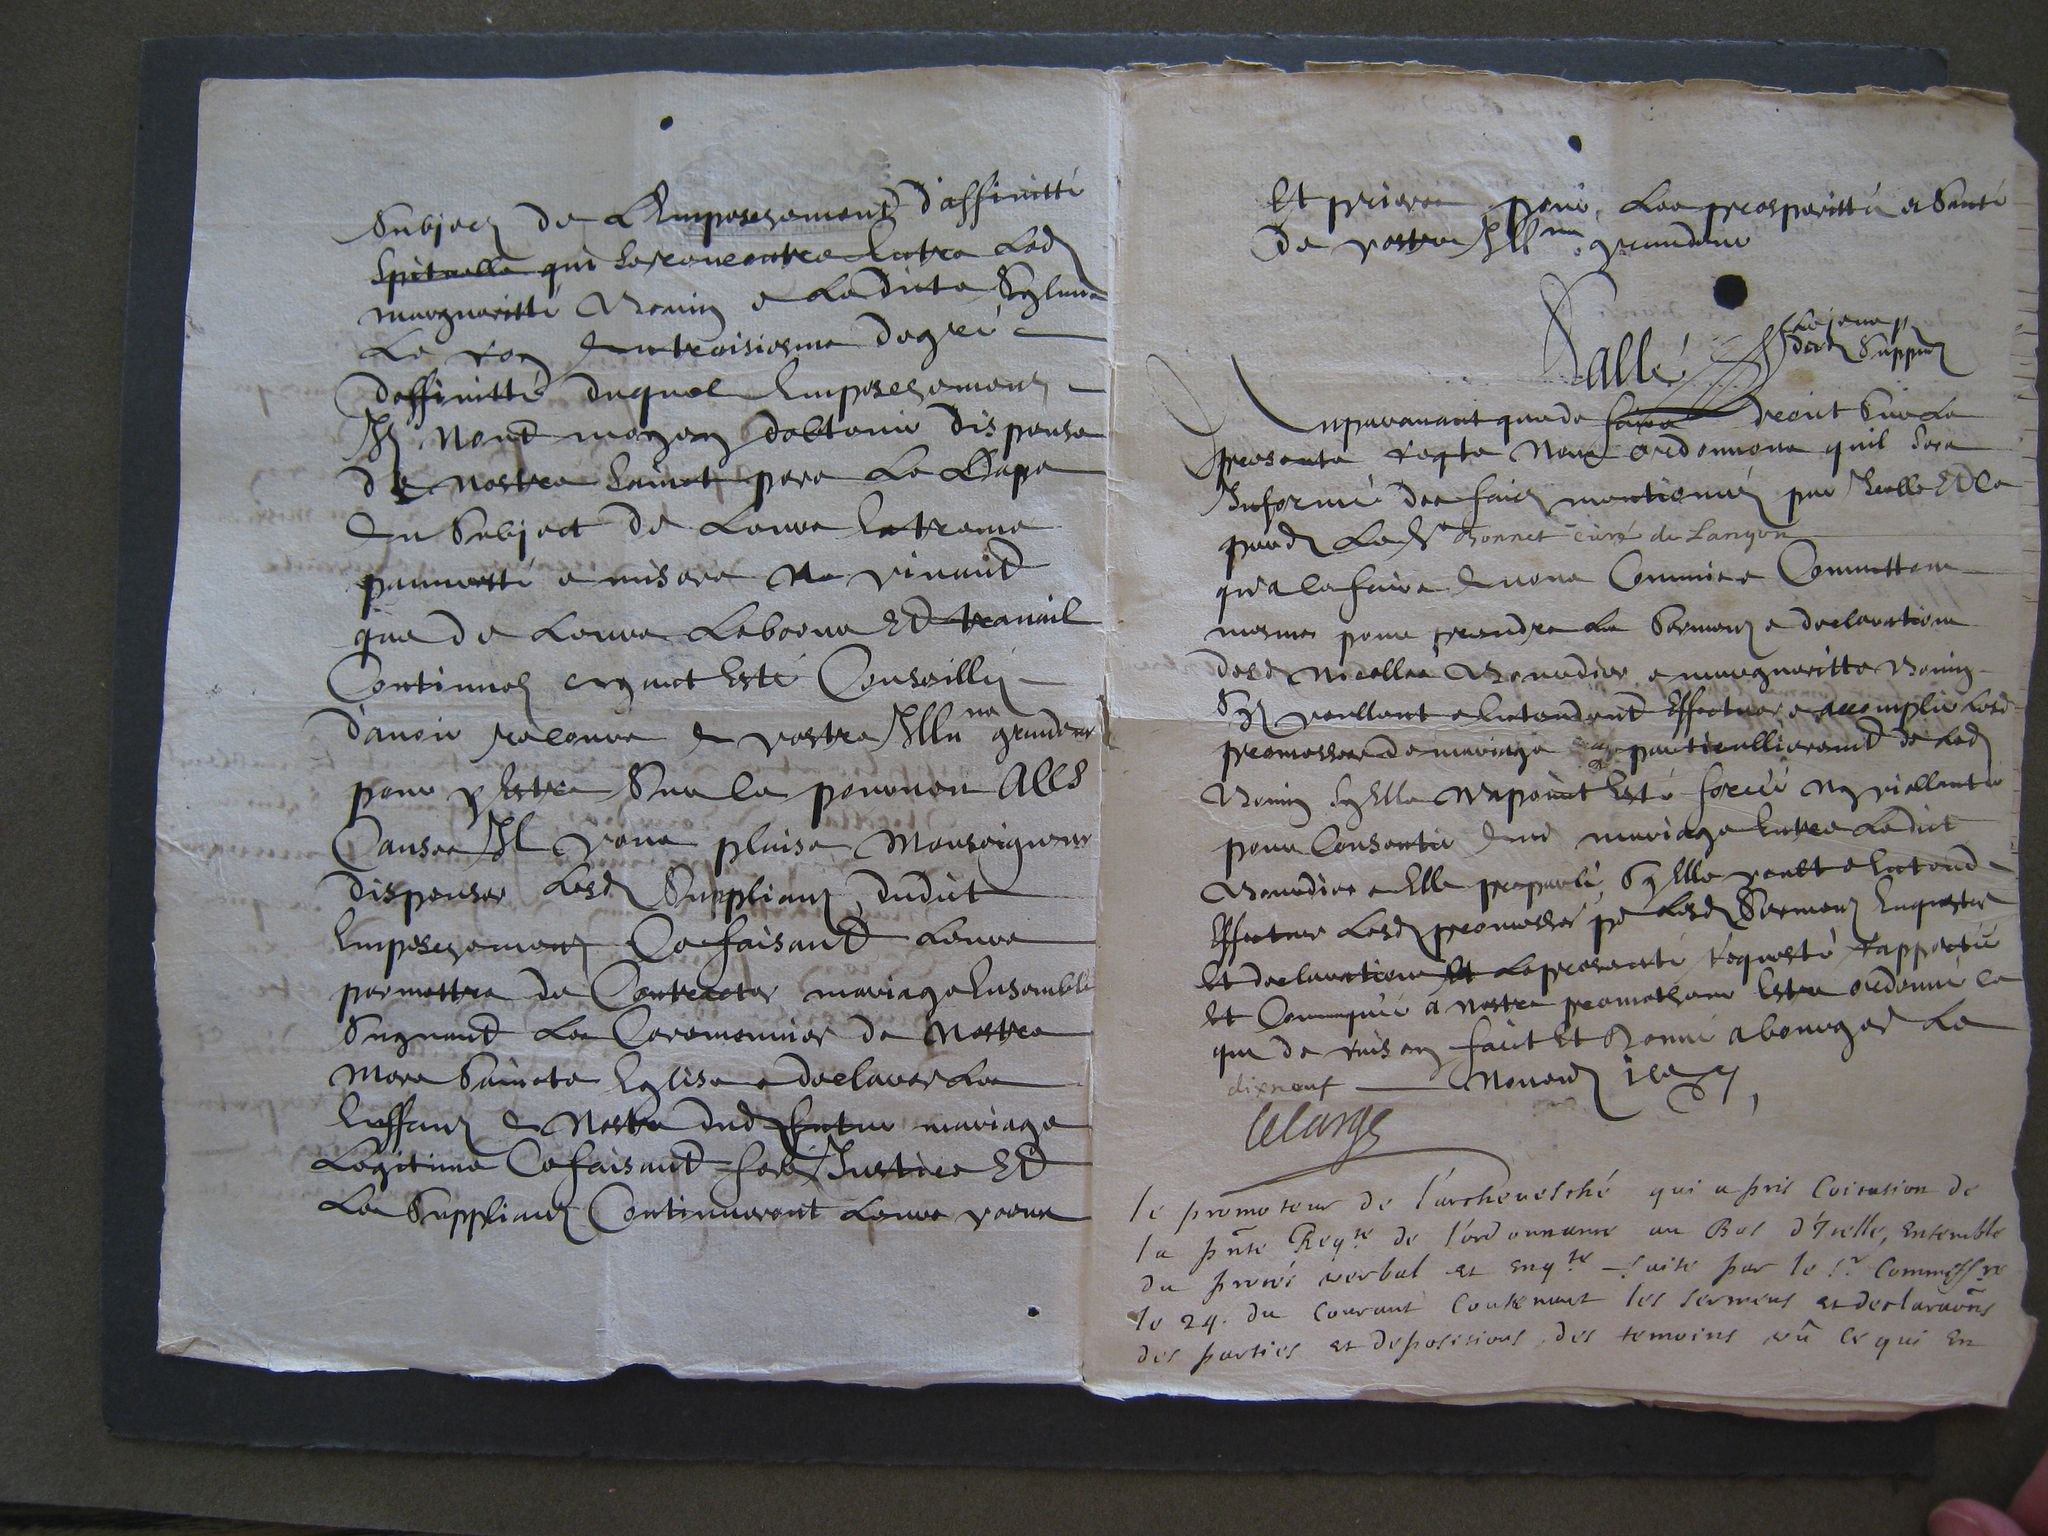 Subject de L'Empeschement d'affinitté
spirituelle qui se rencontre Entre Lad
marguaritté Bonin e Ladicte Sylvine
Le Roy du troisiesme degré
daffinitté duquel Empeschement
Ilz Nont moyen dobtenir dispense
de Nostre Sainct pere Le Pape
Au Subject de Leure Extreme
pauvretté e misere Ne vivant
que de Leure Laboure Et travail
Continuel ayant Esté Conseillez
d'avoir recoure A vostre Illme grandeur
pour y Estre Sur la pourvou A Ces
Causes Il vous plaise Monseigneur
dispenser Lesd Supplians dudict
Empeschement Ce faisant Leure
permettre de Contracter mariage Ensemble
Suyvant Les Ceremonies de Nostre
Mere Saincte Eglise e declarer Les
Enffans A Naistre dud futur mariage
Legitime Ce faisant ferez Justice Et
Les Supplians Continueront Leure voeux
Et prieres pour Les prosperitté et Santé
De vostre Illme grandeur
Sallé
desd Supplians
Auparavant que de faire droict Sur La
presente reqte Nous ordonnons quil Sera
Informé des faicts mentionnez par Icelle Et de
pard Le Sr Bonnet curé de Langon
qu'a la faire Avons Commis e Commettons
mesmes pour prendre Les Sermens e declarations
desd Nicollas Bonudier e marguaritte Bonin
Sy veullent e Entendent Effectuer e accomplir Lesd
promesses de mariage particullierement de Lad
Bonin Sy Elle Na point Esté forcée Ny viollantée
pour Consentir Aud mariage Entre Ledict
Bonudier e Elle preparlé, Sy Elle veult e Entend
Effectuer Lesd promesses po Lesd Sermens Enqueste
Et declarations Et La presente Requeste rapportée
Et Comuniqué a Nostre promotheur Estre ordonné ce
que de raison faict Et Donné a bourges Le
dixneuf Novembre
Lelarge
le promoteur de l'archevesché qui a pris Coicasion de
la pñte Reqte de l'ordonnance au Bas d'Icelle, Ensemble
du procés verbal et Enqte faite par le Sr Commissre
le 24. du Courant Contenant les sermens et declaraõns
des parties et depositions des temoins vû ce qui En